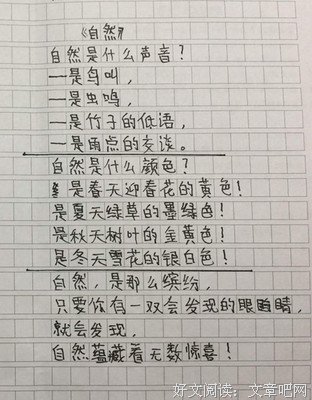 《自然》
自然是什么声音?
一是鸟叫,
一是虫鸣,
一是竹子的低语,
一是雨点的交谈。
自然是什么颜色?
是春天迎春花的黄色!
是夏天绿草的墨绿色!
是秋天树叶的金黄色!
是冬天雪花的银白色!
自然,是那么缤纷,
只要你有一双会发现的眼睛,
就会发现,
自然蕴藏着无数惊喜!
好文阅读:文章吧网